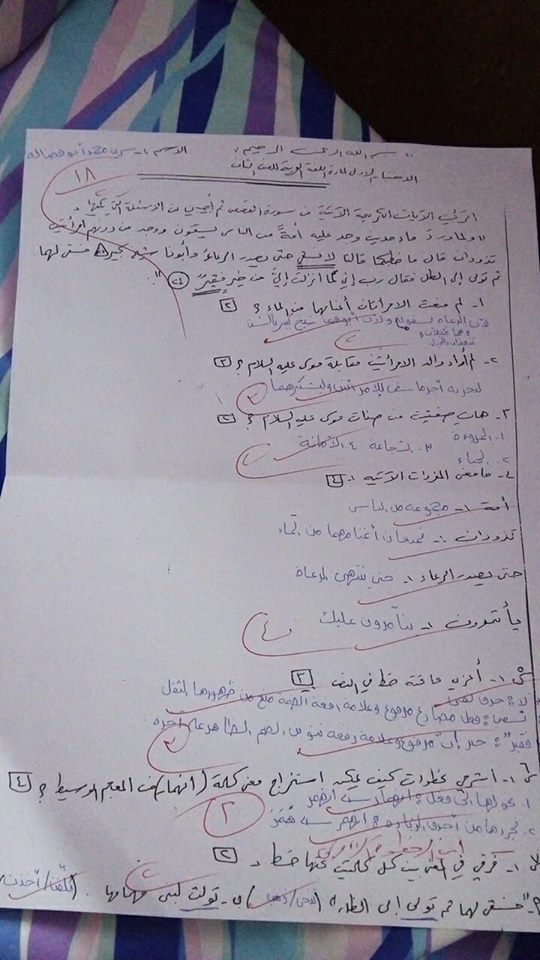 بسم الله الرحمن الرحيم
الاسم :-
الامتحان الأول لمادة اللغة العربية للصف الثامن
١٨
اقرئي الآيات الكريمة الآتية من سورة القصص ثم أجيبي عن الأسئلة التي تليها :
" ولما ورد ماء مدين وجد عليه أمة من الناس يسقون ووجد من دونهم امرأتين
تذودان قال ما خطبكما قالتا لا نسقي حتى يصدر الرعاء وأبونا شيخ كبير فسقى لهما
ثم تولى إلى الظل فقال رب إني لما أنزلت إلي من خير فقير (٢٤) "
١- لم منعت الامرأتان أغنامها من الماء ؟ ٢
شيخ كبير بالسن
٢- لم أراد والد الامرأتين مقابلة موسى عليه السلام ؟ ٣
٣
٣- هات صفتين من صفات موسى عليه السلام ؟ ٢
١. المروءة ٣. الشجاعة ٤. الأمانة
٢. الحياء
٤- ما معنى المفردات الآتية :- ٤
أمة :- مجموعة من الناس
تذودان :- تمنعان أغنامهما من الماء
حتى يصدر الرعاء :- حتى ينتهي الرعاة
يأتمرون :- يتآمرون عليك
٤
س١- أعربي ما تحته خط في النص ٣
لا : حرف نفي
نسقي : فعل مضارع مرفوع وعلامة رفعه الضمة منع من ظهورها الثقل
فقير : خبر إن مرفوع وعلامة رفعه تنوين الضم الظاهر على آخره
١- اشرحي بخطوات كيف يمكنك استخراج معنى كلمة (انهمار) في المعجم الوسيط ؟ ٤
١. نحولها إلى فعل : انهمار ← انهمر
٢. نجردها من أحرف الزيادة : انهمر ← همر
٢
١- فرقي في المعنى بين كل كلمتين تحتها خط :- ٢
"فسقى لهما ثم تولى إلى الظل" تولت لبنى مهامها